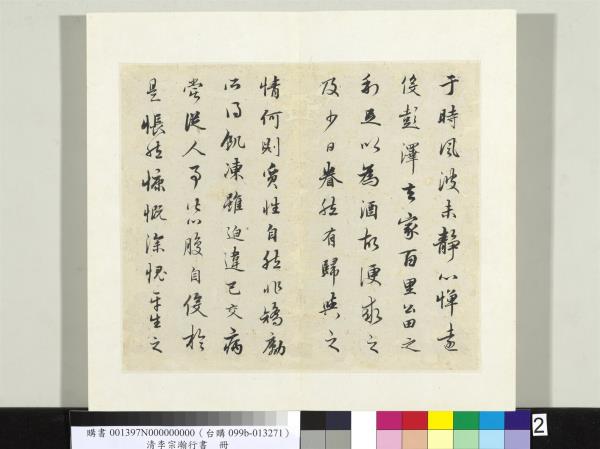 于時風波未靜心憚遠
役彭澤去家百里公田之
利足以為酒故便求之
及少日眷然有歸與之
情何則質性自然非矯勵
所得飢凍雖迫違己交病
嘗從人事皆口腹自役於
是悵然慷慨深愧平生之
購書 001397N000000000(台購 099b-013271)
清李宗瀚行書 冊
2